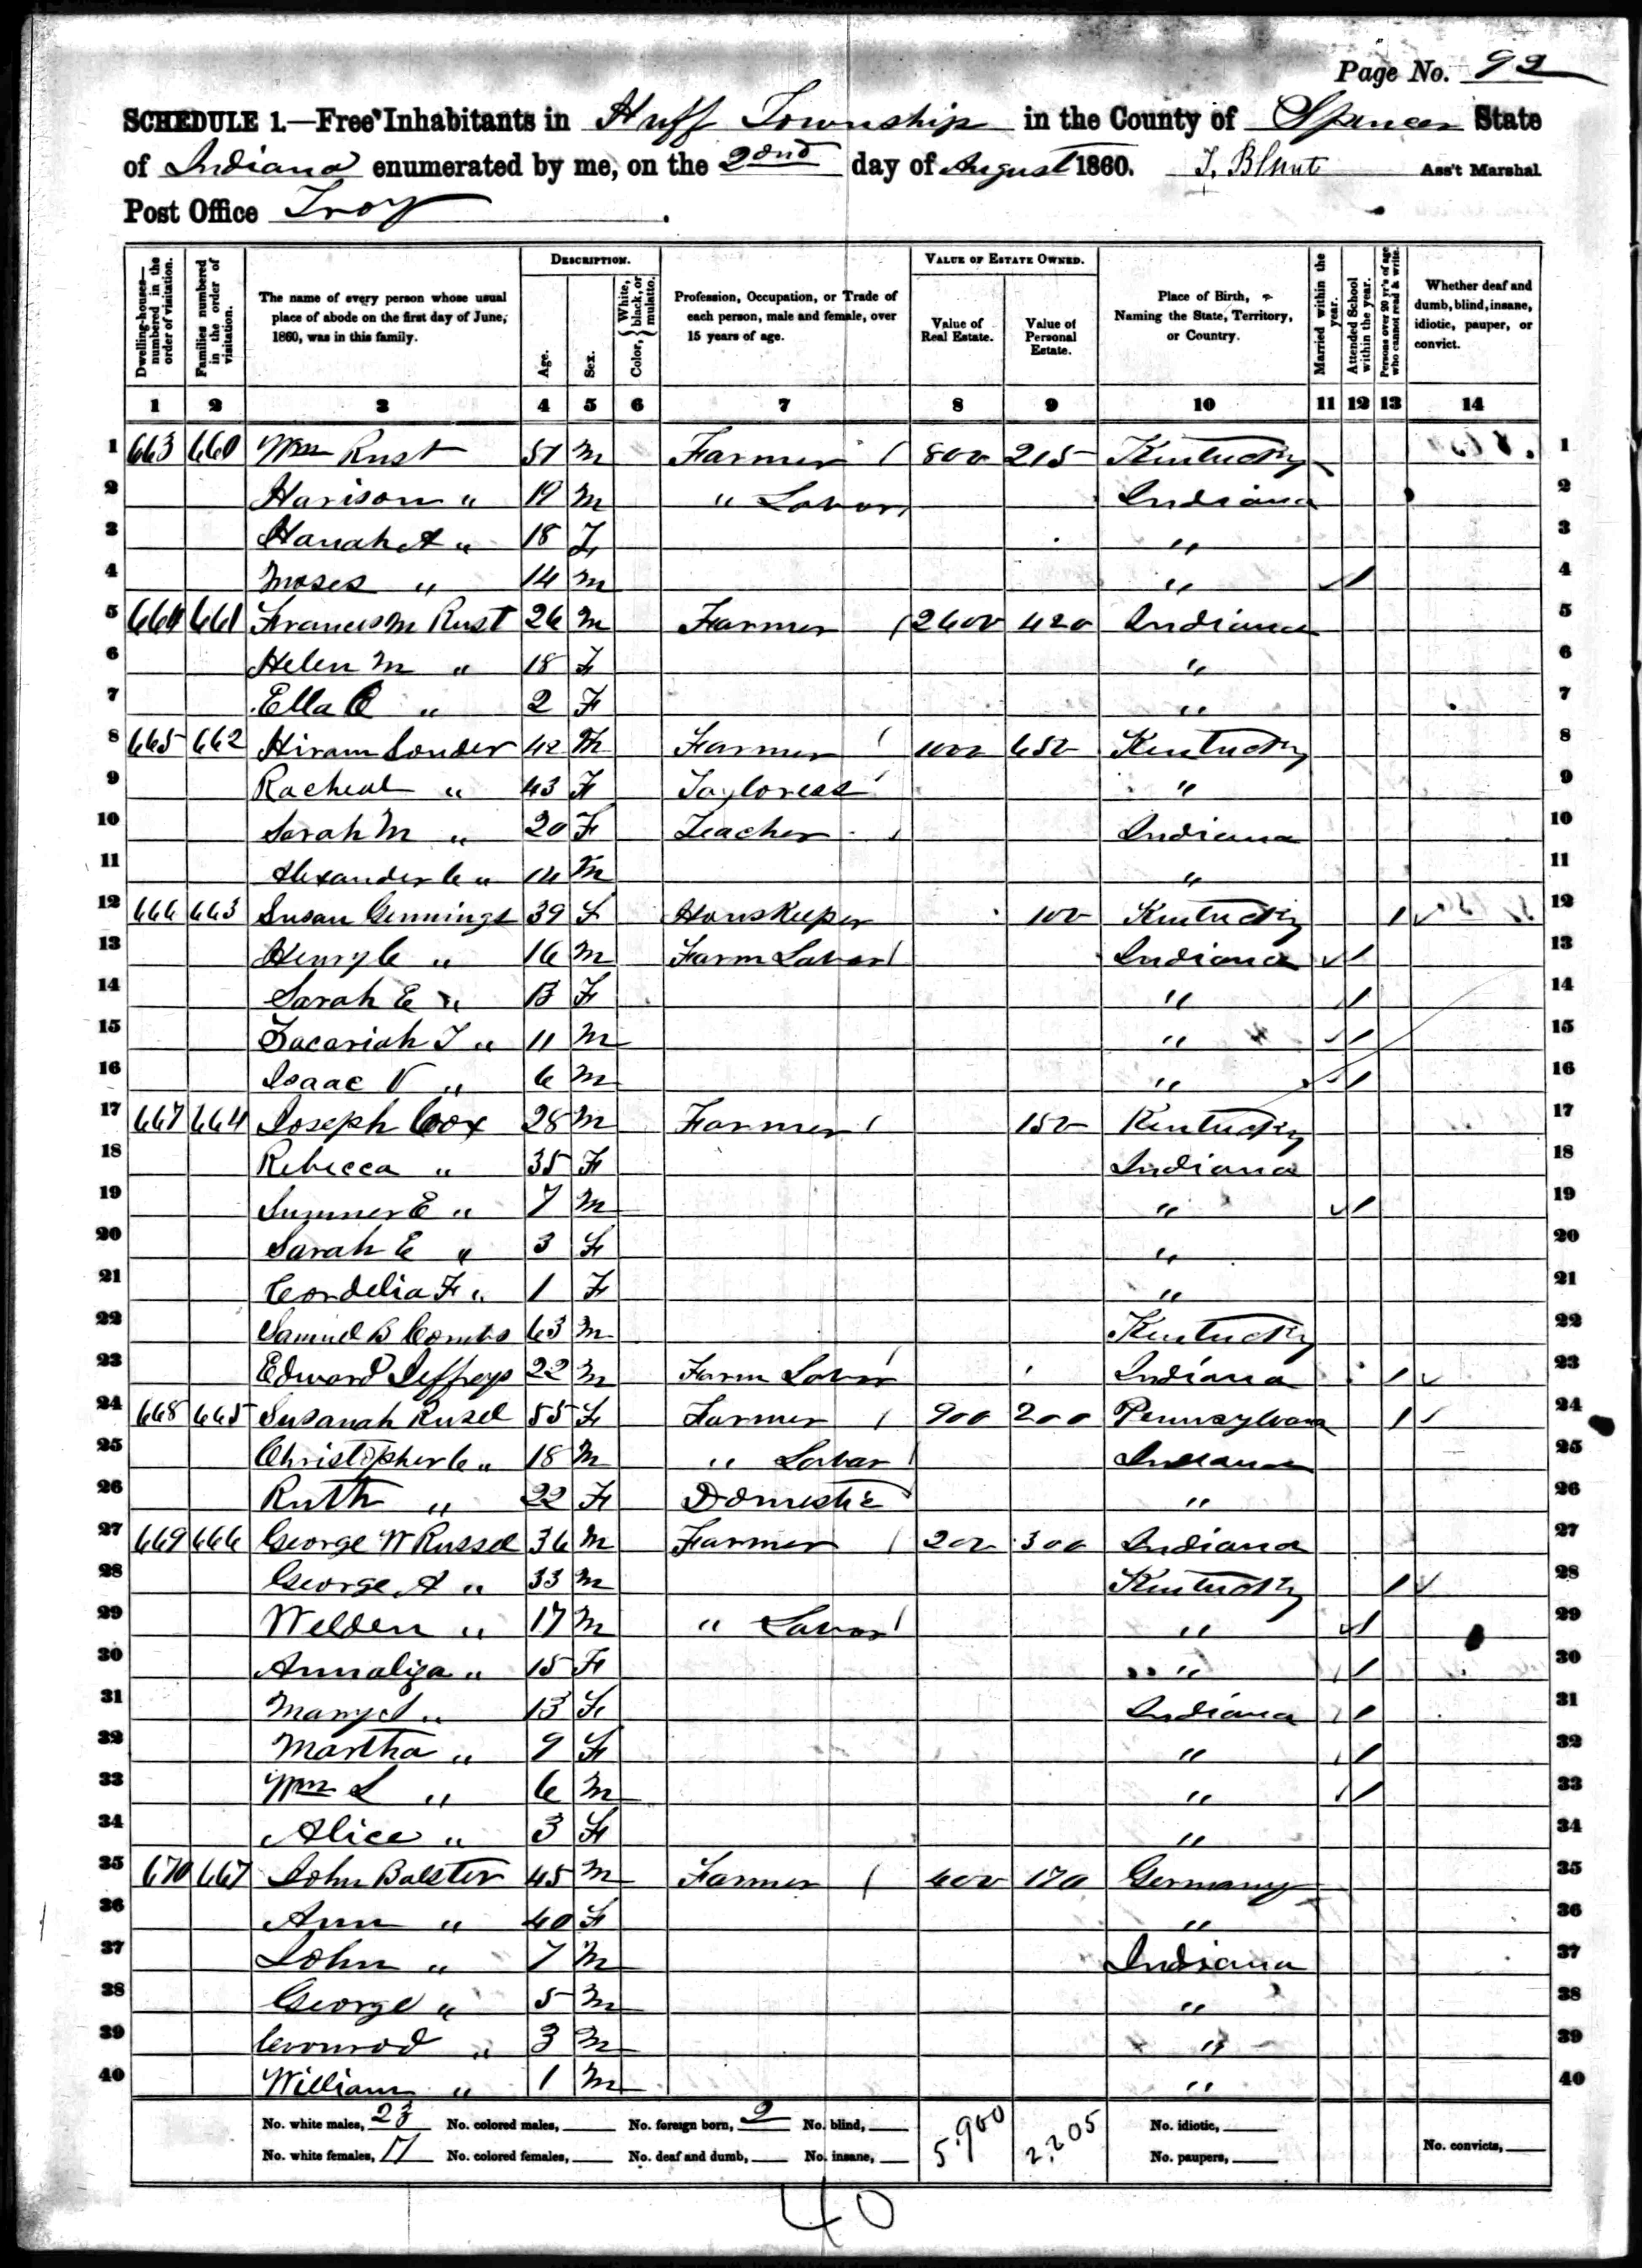 Page No. 92
SCHEDULE 1.—Free Inhabitants in Huff Township in the County of Spencer State
of Indiana enumerated by me, on the 2nd day of August 1860. T. Blunt Ass't Marshal
Post Office Troy
Dwelling-houses—numbered in the order of visitation. Families numbered in the order of visitation. The name of every person whose usual place of abode on the first day of June, 1860, was in this family. DESCRIPTION. Age. Sex. Color, { White, black, or mulatto. Profession, Occupation, or Trade of each person, male and female, over 15 years of age. VALUE OF ESTATE OWNED. Value of Real Estate. Value of Personal Estate. Place of Birth, Naming the State, Territory, or Country. Married within the year. Attended School within the year. Persons over 20 yr's of age who cannot read & write. Whether deaf and dumb, blind, insane, idiotic, pauper, or convict.
1 2 3 4 5 6 7 8 9 10 11 12 13 14
1 663 660 Wm Rust 51 M Farmer 800 215 Kentucky 1
2 Harison " 19 M " Labor Indiana 2
3 Hanah A " 18 F " 3
4 Moses " 14 M " / 4
5 664 661 Francis M Rust 26 M Farmer 2600 420 Indiana 5
6 Helen M " 18 F " 6
7 Ella C " 2 F " 7
8 665 662 Hiram Souder 42 M Farmer 1000 650 Kentucky 8
9 Racheal " 43 F Tayloress " 9
10 Sarah M " 20 F Teacher Indiana 10
11 Alexander C " 14 M " 11
12 666 663 Susan Gennings 39 F HousKeeper 100 Kentucky / 12
13 Henry C " 16 M Farm Labor Indiana / 13
14 Sarah E " 13 F " / 14
15 Zacariah T " 11 M " / 15
16 Isaac V " 6 M " / 16
17 667 664 Joseph Cox 28 M Farmer 150 Kentucky 17
18 Rebecca " 35 F Indiana 18
19 Sumner E " 7 M " / 19
20 Sarah E " 3 F " 20
21 Cordelia F " 1 F " 21
22 Samuel B Combs 63 M Kentucky 22
23 Edward Jeffreys 22 M Farm Labor Indiana / 23
24 668 665 Susanah Rusel 55 F Farmer 900 200 Pennsylvana / 24
25 Christopher C " 18 M " Labor Indiana 25
26 Ruth " 22 F Domestic " 26
27 669 666 George W Russel 36 M Farmer 200 300 Indiana 27
28 George A " 33 M Kentucky / 28
29 Welden " 17 M " Labor " / 29
30 Annaliza " 15 F " / 30
31 Mary A " 13 F Indiana / 31
32 Martha " 9 F " / 32
33 Wm L " 6 M " / 33
34 Alice " 3 F " 34
35 670 667 John Balster 45 M Farmer 400 170 Germany 35
36 Ann " 40 F " 36
37 John " 7 M Indiana 37
38 George " 5 M " 38
39 Conrod " 3 M " 39
40 William " 1 M " 40
No. white males, 23 No. colored males, No. foreign born, 2 No. blind, 5.900 2.205 No. idiotic,
No. white females, 17 No. colored females, No. deaf and dumb, No. insane, No. paupers, No. convicts,
40